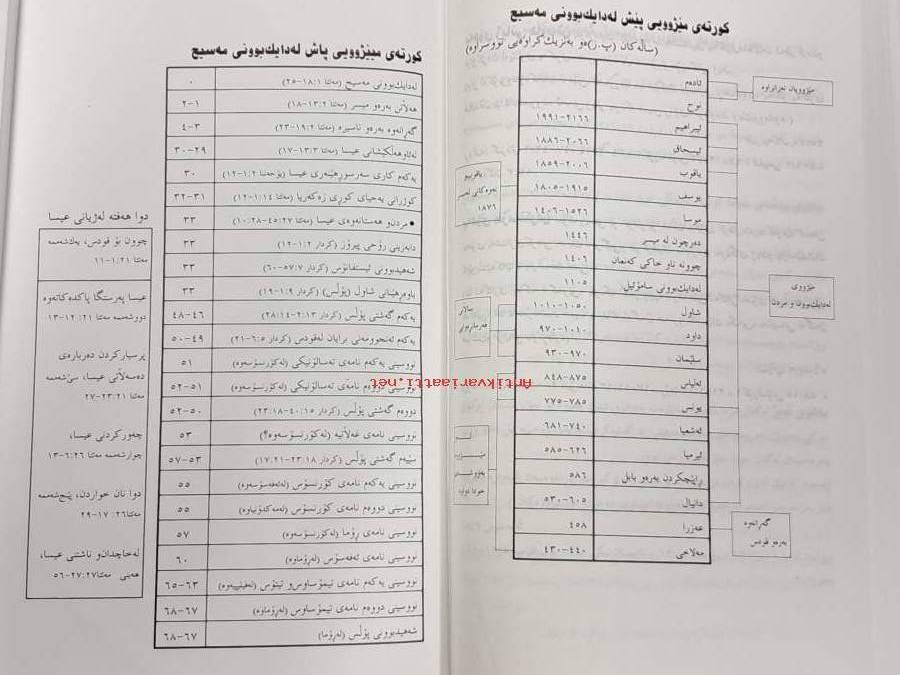 کورتەی مێژوویی پێش لەدایك‌بوونی مەسیح
(ساڵەکان (پ.ز)ەو بەنزیك کراوەیی نووسراوە)
ئادەم
نوح
ئیبراهیم ٢١٦٦-١٩٩١
ئیسحاق ٢٠٦٦-١٨٨٦
یاقوب ٢٠٠٦-١٨٥٩
یوسف ١٩١٥-١٨٠٥
موسا ١٥٢٦-١٤٠٦
دەرچون لە میسر ١٤٤٦
چوونە ناو خاکی کەنعان ١٤٠٦
لەدایك‌بوونی سامۆئیل ١١٠٥
شاول ١٠٥٠-١٠١٠
داود ١٠١٠-٩٧٠
سلێمان ٩٧٠-٩٣٠
ئەلیاس ٨٧٥-٨٤٨
یونس ٧٨٥-٧٧٥
ئەشعیا ٧٤٠-٦٨١
ئیرمیا ٦٢٦-٥٨٥
ڕاپێچکردن بەرەو بابل ٥٨٦
دانیال ٦٠٥-٥٣٠
عەزرا ٤٥٨
مەلاخی ٤٤٠-٤٣٠
مێژوویان نەزانراوە
مێژووی
لەدایك‌بوون و مردن
گەڕانەوە
بەرەو قودس
١٨٧٦
سالار
خودا دوان
کورتەی مێژوویی پاش لەدایك‌بوونی مەسیح
لەدایك‌بوونی مەسیح (مەتتا ١:١٨-٢٥) ٠
هەڵاتن بەرەو میسر (مەتتا ٢:١٣-١٨) ١-٢
گەڕانەوە بەرەو ناسیرە (مەتتا ٢:١٩-٢٣) ٣-٤
لەئاوهەڵکێشانی عیسا (مەتتا ٣:١٣-١٧) ٢٩-٣٠
یەکەم کاری سەرسوڕهێنەری عیسا (یۆحەننا ٢:١-١٢) ٣٠
کوژرانی یەحیای کوڕی زەکەریا (مەتتا ١٤:١-١٢) ٣١-٣٢
• مردن‌و هەستانەوەی عیسا (مەتتا ٢٧:٤٥-٢٨:١٠) ٣٣
دابەزینی ڕۆحی پیرۆز (کردار ٢:١-١٢) ٣٣
شەهیدبوونی ئیستفانۆس (کردار ٧:٥٧-٦٠) ٣٣
باوەڕهێنانی شاول (پۆڵس) (کردار ٩:١-١٩) ٣٣
یەکەم گەشتی پۆڵس (کردار ١٣:٢-١٤:٢٨) ٤٦-٤٨
یەکەم ئەنجوومەنی برایان لەقودس (کردار ١٥:٦-٢١) ٤٩-٥٠
نووسینی یەکەم نامەی تەسالۆنیکی (لەکۆرنسۆسەوە) ٥١
نووسینی دووەم نامەی تەسالۆنیکی (لەکۆرنسۆسەوە) ٥١-٥٢
دووەم گەشتی پۆڵس (کردار ١٥:٤٠-١٨:٢٣) ٥٠-٥٢
نووسینی نامەی غەڵاتیە (لەکۆرنسۆسەوە؟) ٥٣
سێیەم گەشتی پۆڵس (کردار ١٨:٢٣-٢١:١٧) ٥٣-٥٧
نووسینی یەکەم نامەی کۆرنسۆس (لەئەفەسۆسەوە) ٥٥
نووسینی دووەم نامەی کۆرنسۆس (لەمەکدۆنیاوە) ٥٥
نووسینی نامەی ڕۆما (لەکۆرنسۆسەوە) ٥٧
نووسینی نامەی ئەفەسۆس (لەڕۆماوە) ٦٠
نووسینی یەکەم نامەی تیمۆساوس‌و تیتۆس (لەفیلیپیەوە) ٦٣-٦٥
نووسینی دووەم نامەی تیمۆساوس (لەڕۆماوە) ٦٧-٦٨
شەهیدبوونی پۆڵس (لەڕۆما) ٦٧-٦٨
دوا هەفتە لەژیانی عیسا
چوون بۆ قودس، یەك‌شەممە
مەتتا ٢١:١-١١
عیسا پەرستگا پاکدەکاتەوە
دووشەممە مەتتا ٢١: ١٢-١٣
پرسیارکردن دەربارەی
دەسەڵاتی عیسا، سێ‌شەممە
مەتتا ٢١:٢٣-٢٧
چەورکردنی عیسا،
چوارشەممە مەتتا ٢٦:٦-١٣
دوا نان خواردن، پێنج‌شەممە
مەتتا ٢٦: ١٧-٢٩
لەخاچدان‌و ناشتی عیسا،
هەینی مەتتا ٢٧:٢٧-٥٦
Antikvariaatti.net